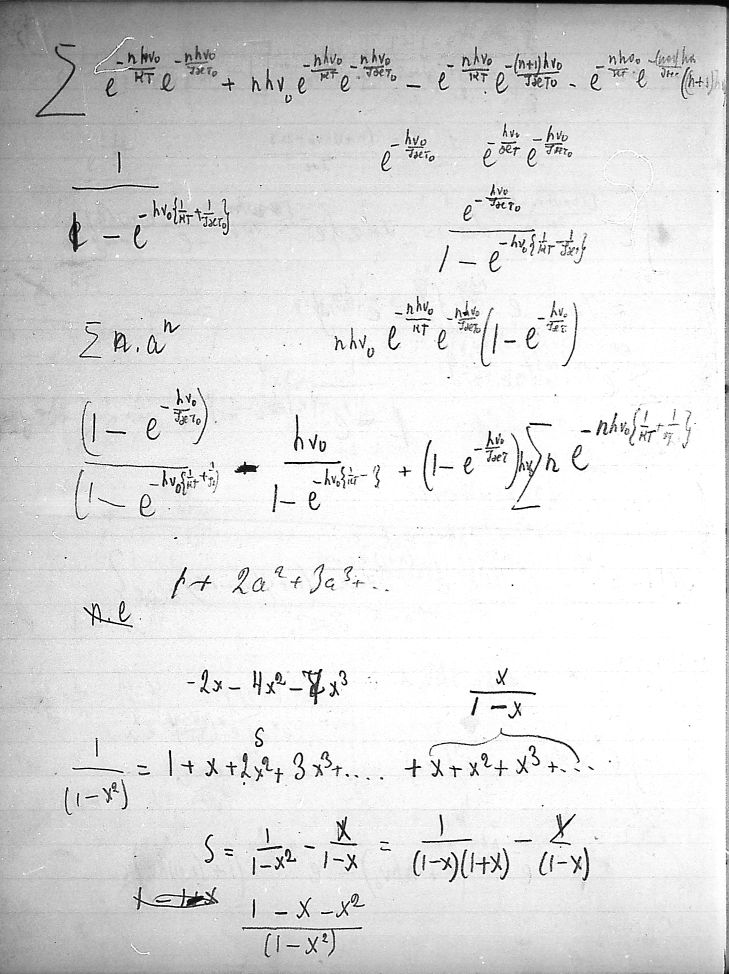 ∑ e^{-nhν₀/κT} e^{-nhν₀/JϰT₀} + nhν₀ e^{-nhν₀/κT} e^{-nhν₀/JϰT₀} − e^{-nhν₀/κT} e^{-(n+1)hν₀/JϰT₀} −
e^{-hν₀/JϰT₀} e^{-hν₀/ϰT} e^{-hν₀/JϰT₀}
1/(1 − e^{-hν₀{1/κT + 1/JϰT₀}}) e^{-hν₀/JϰT₀}/(1 − e^{-hν₀{1/κT − 1/Jϰ}})
∑ n.aⁿ nhν₀ e^{-nhν₀/κT} e^{-nhν₀/JϰT₀} (1 − e^{-hν₀/Jϰτ})
(1 − e^{-hν₀/JϰT₀})/(1 − e^{-hν₀{1/κT + 1/J}}) - hν₀/(1 − e^{-hν₀{1/κT − }}) + (1 − e^{-hν₀/Jϰτ}) hν₀ ∑ n e^{-nhν₀{1/κT + 1/J}}
1 + 2a² + 3a³ + ..
n.e
-2x − 4x² − 7x³ x/(1−x)
S
1/(1−x²) = 1 + x + 2x² + 3x³ + .... + x + x² + x³ + ...
S = 1/(1−x²) − x/(1−x) = 1/((1−x)(1+x)) − x/(1−x)
(1 − x − x²)/(1−x²)